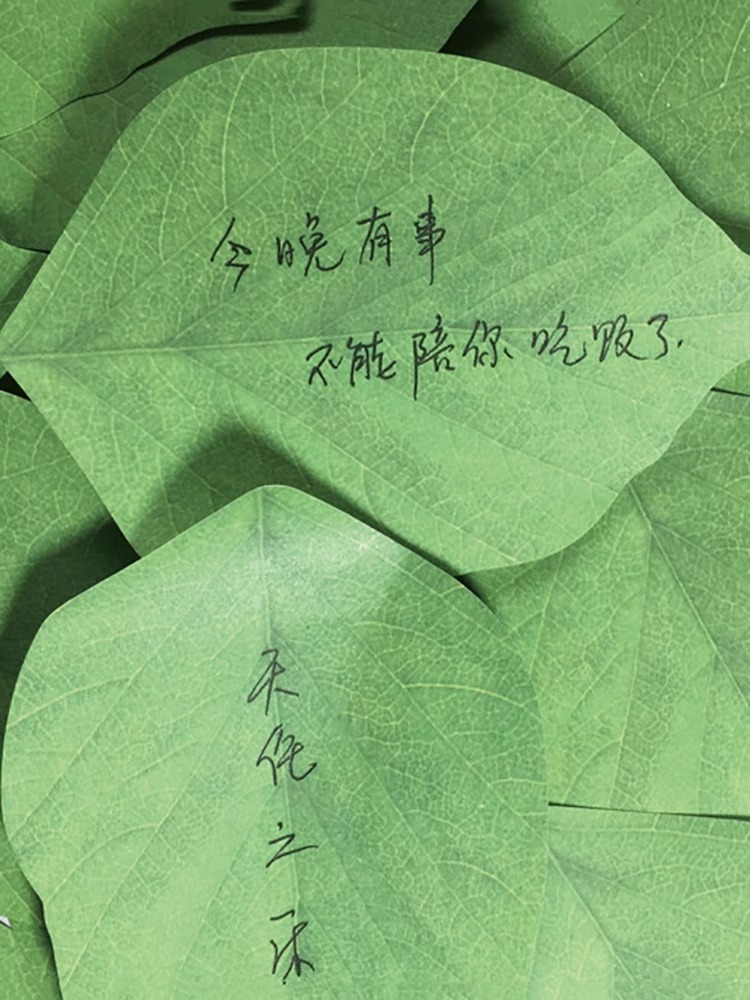 今晚有事
不能陪你吃饭了.
天之一